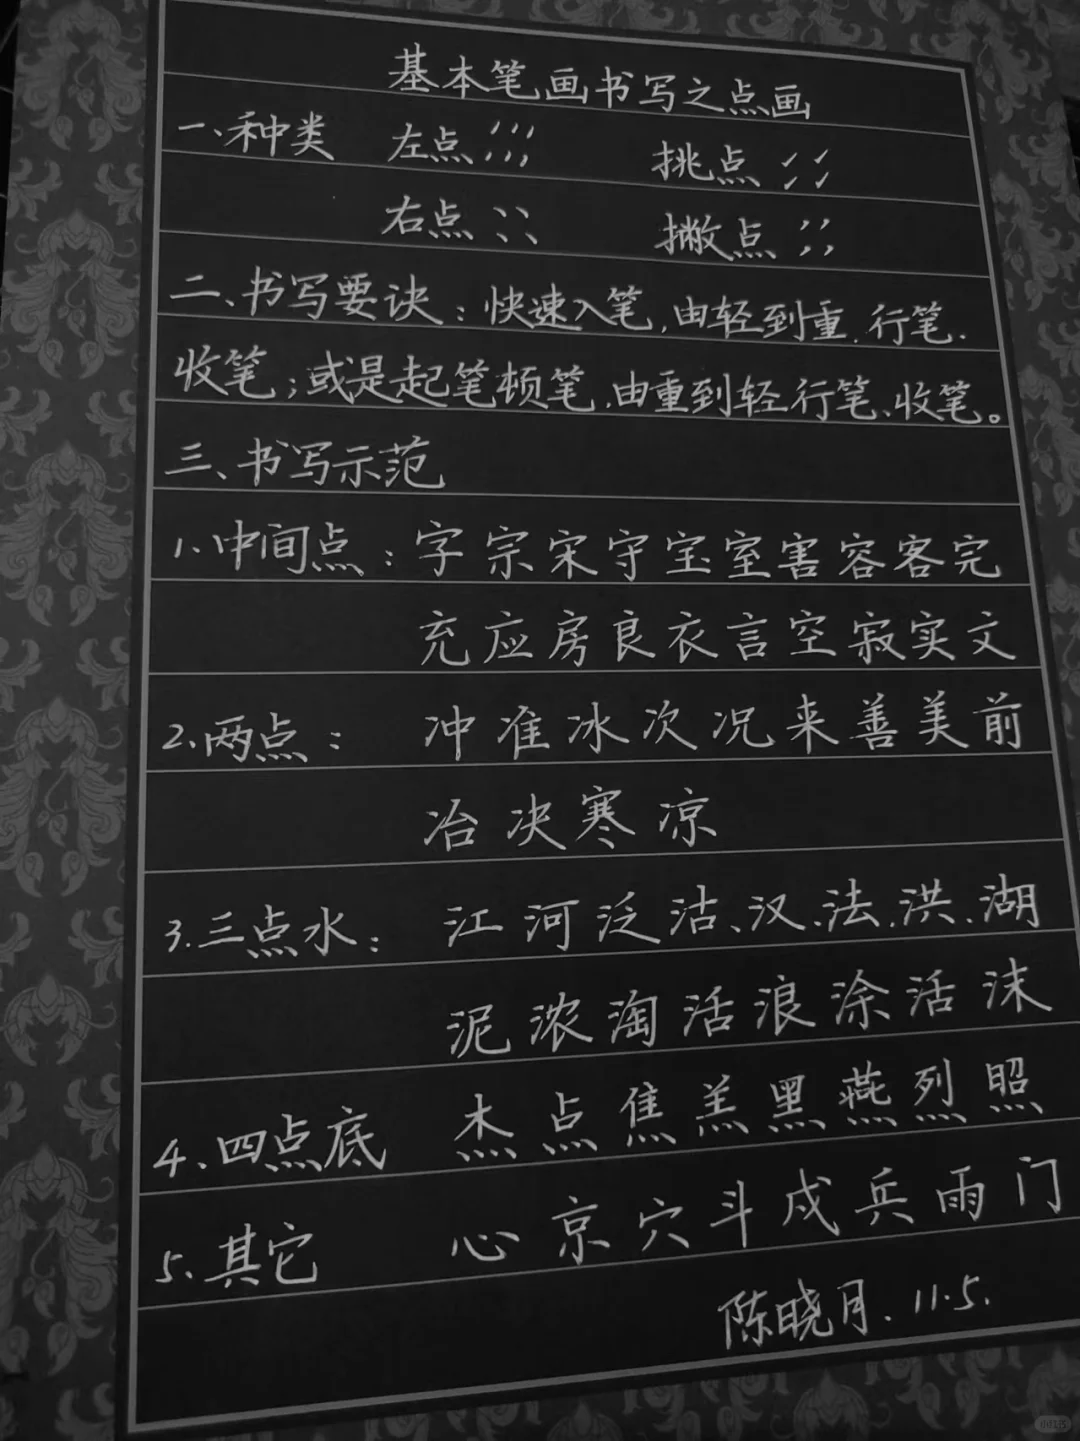 基本笔画书写之点画
一、种类 左点 挑点
右点 撇点
二、书写要诀：快速入笔，由轻到重、行笔、
收笔；或是起笔顿笔、由重到轻行笔、收笔。
三、书写示范
1、中间点：字宗宋守宝室害容客完
充应房良衣言空寂实文
2、两点：冲准冰次况来善美前
冶决寒凉
3.三点水：江河泛沽、汉、法、洪、湖
泥浓淘活浪涂活沫
4、四点底 杰点焦羔黑燕烈照
5、其它 心京穴斗戍兵雨门
陈晓月. 11.5.